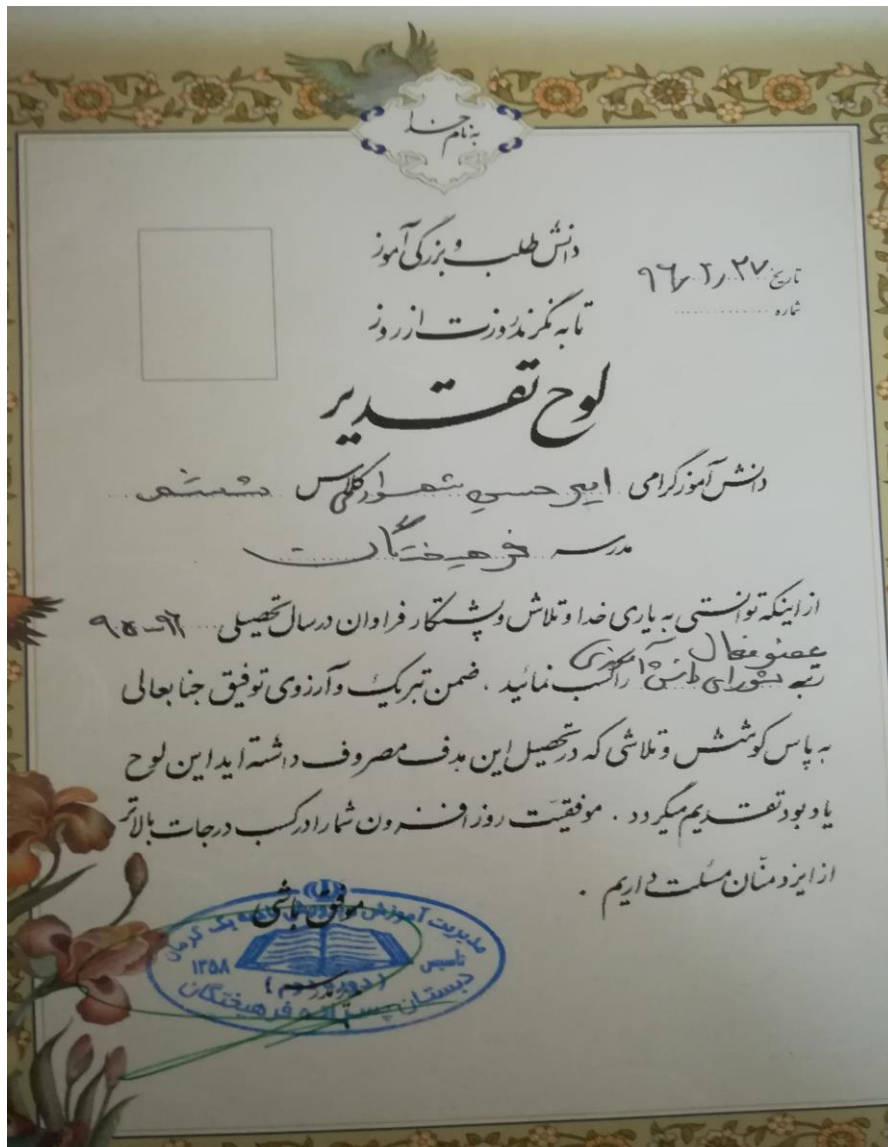 به نام خدا
دانش طلب و بزرگی آموز
تاریخ ۹۶/۲/۲۷
شماره
تا به نگرند روزت از روز
لوح تقدیر
دانش آموز گرامی امیر حسین کلاس ششم
مدرسه فرهیختگان
از اینکه توانستی به یاری خدا و تلاش و پشتکار فراوان در سال تحصیلی ۹۶-۹۵
عضو فعال
رتبه شورای دانش آموزی را کسب نمائید . ضمن تبریک و آرزوی توفیق جنابعالی
به پاس کوشش و تلاشی که در تحصیل این هدف مصروف داشته اید این لوح
یادبود تقدیم میگردد . موفقیت روز افزون شما را در کسب درجات بالاتر
از ایزد منّان مسئلت داریم .
موفق باشی
مدیریت آموزش و پرورش ناحیه یک کرمان
تاسیس ۱۳۵۸
(دوره دوم)
مهر مدرسه
دبستان پسرانه فرهیختگان